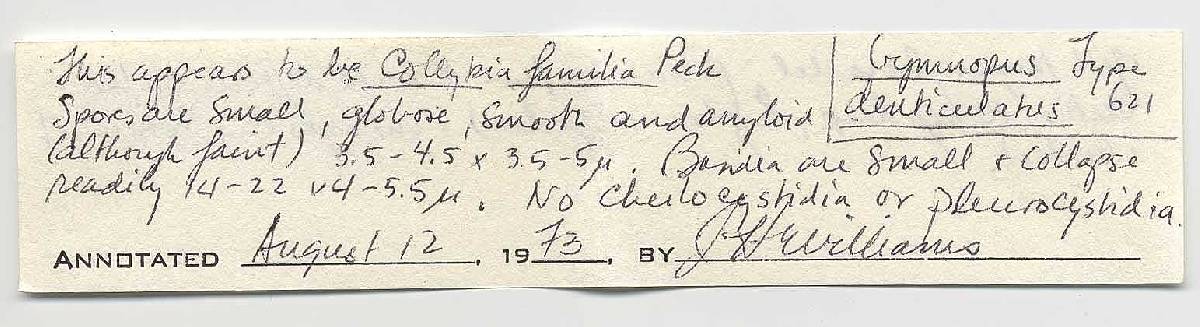 This appears to be Collybia familia Peck
Gymnopus Type
denticulatus 621
Spores are small, globose, smooth and amyloid
(although faint) 3.5-4.5 x 3.5-5µ. Basidia are small & collapse
readily 14-22 x 4-5.5µ. No cheilocystidia or pleurocystidia.
ANNOTATED August 12, 1973, BY Williams